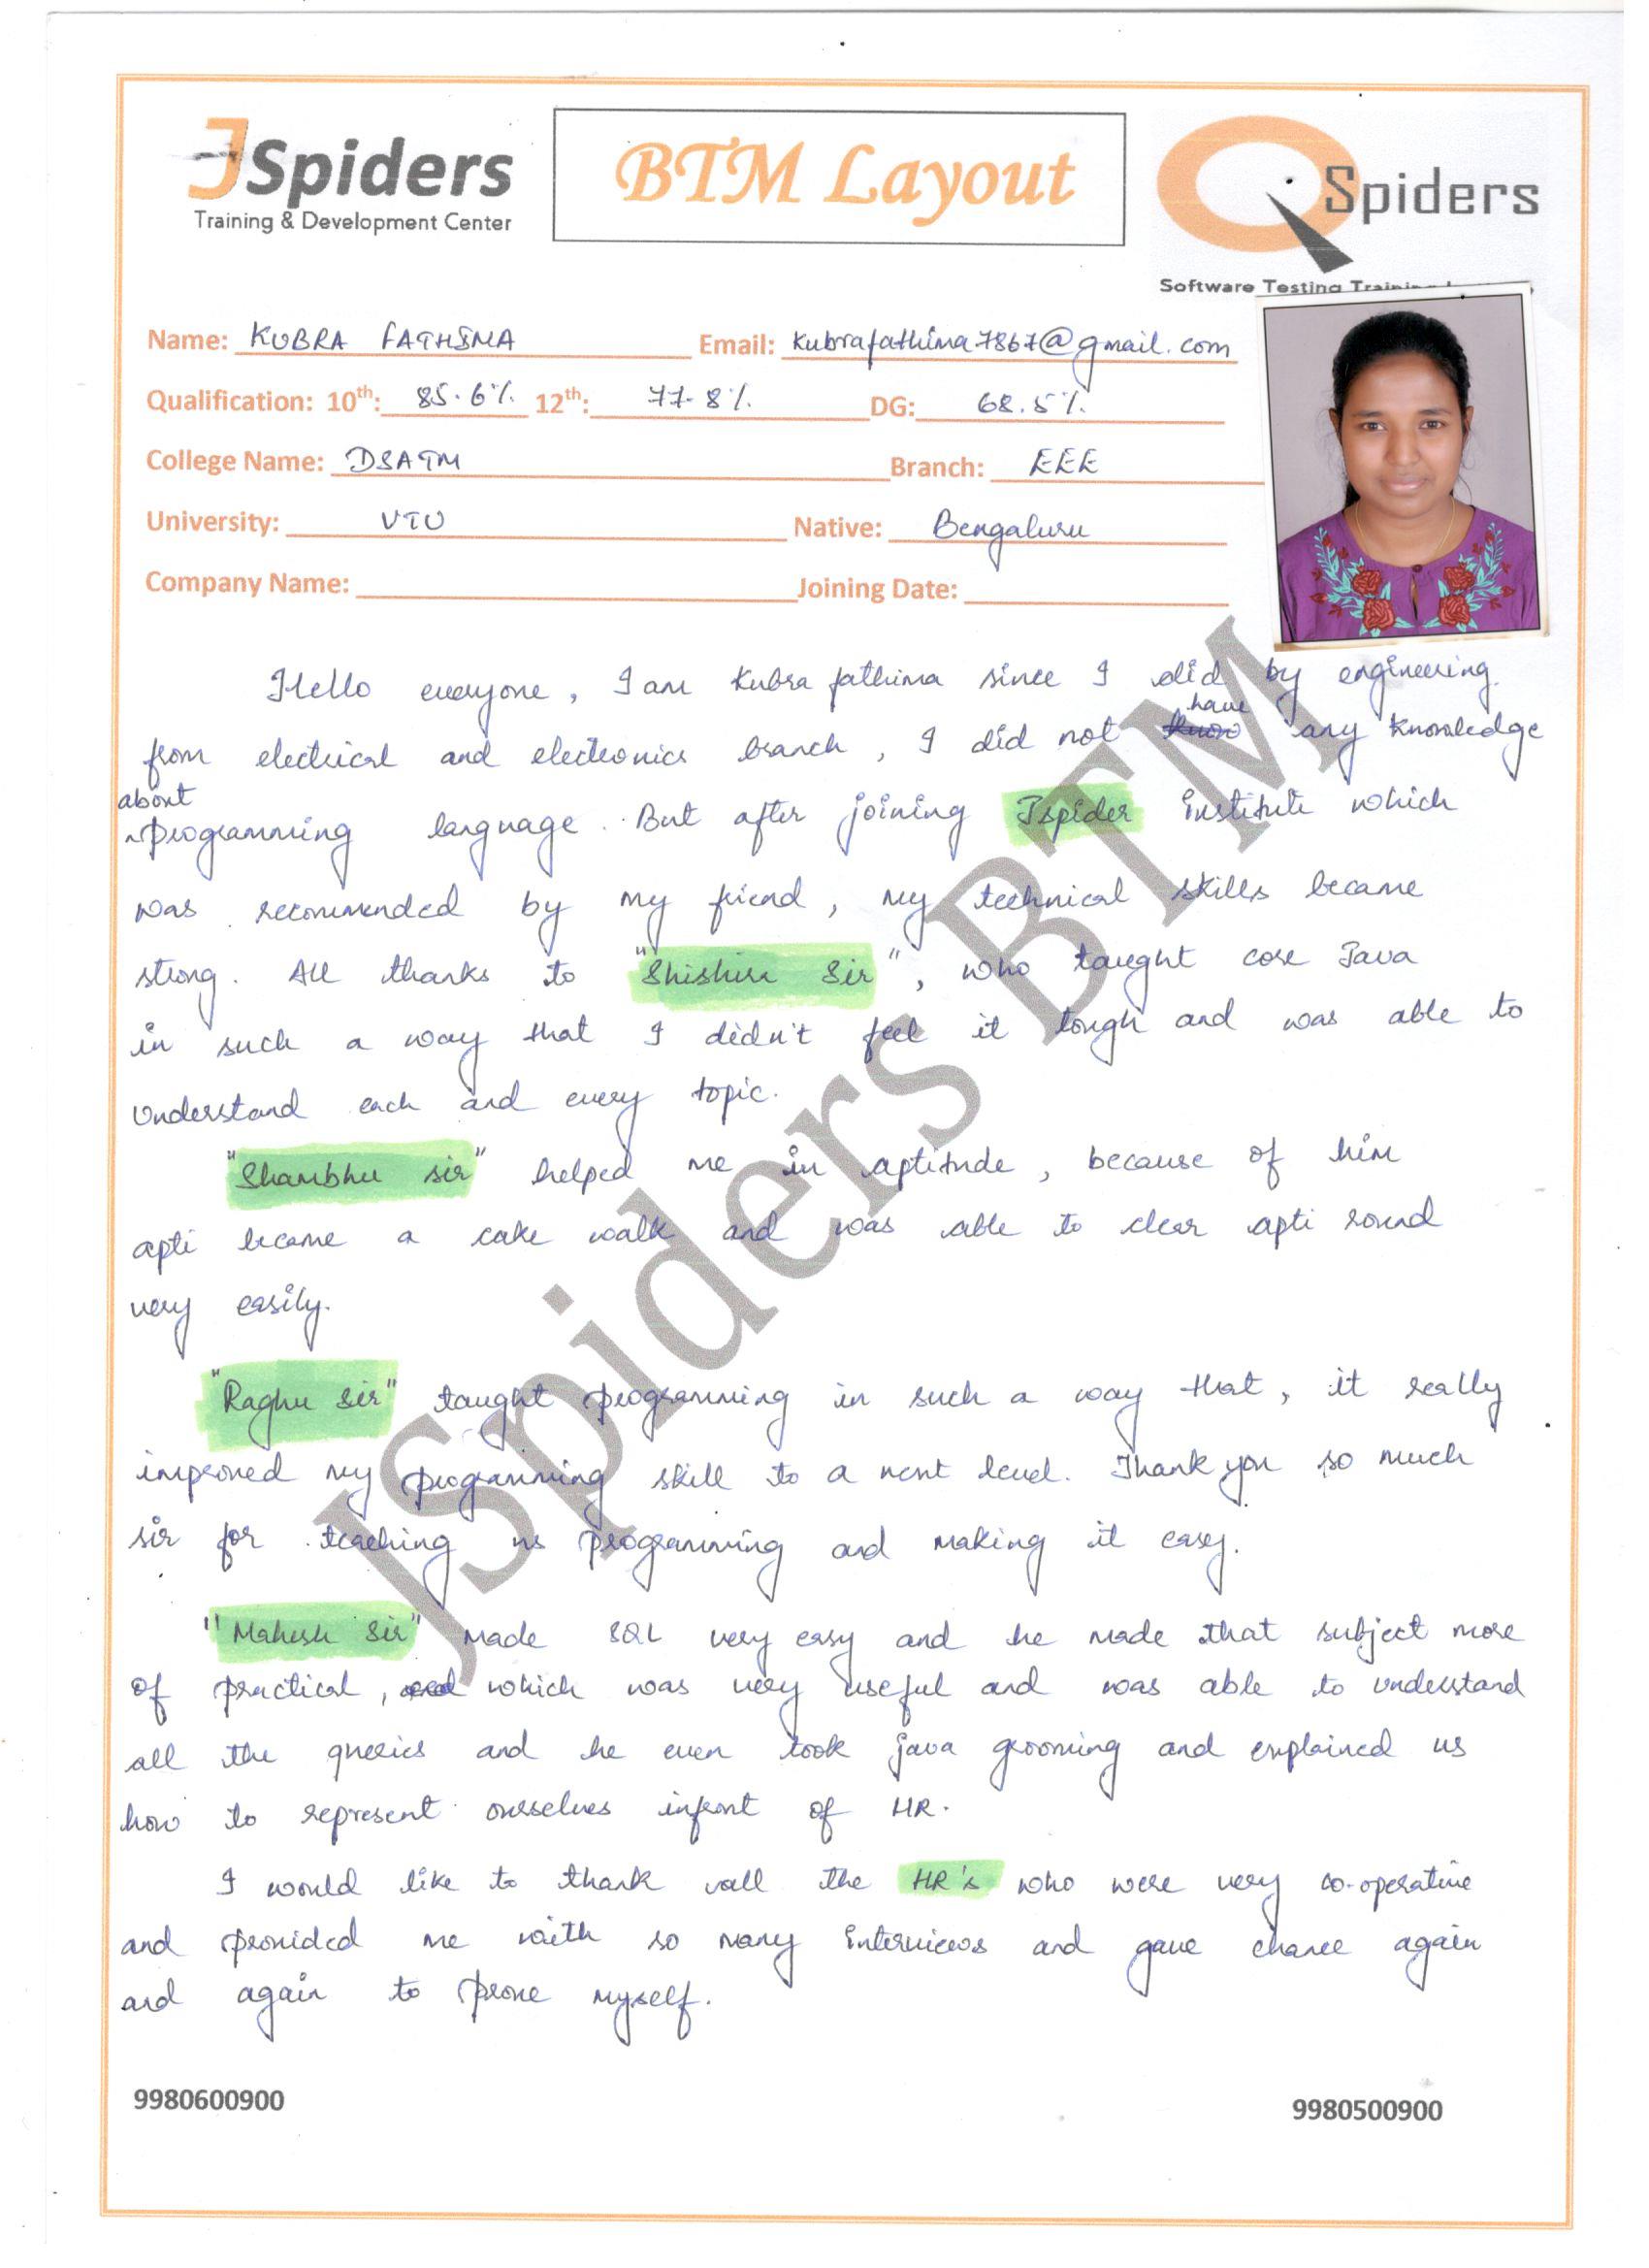 JSpiders
Training & Development Center
BTM Layout
QSpiders
Software Testing
Name: KUBRA FATHIMA Email: kubrafathima7867@gmail.com
Qualification: 10th: 85.6% 12th: 77.8% DG: 68.5%
College Name: DSATM Branch: EEE
University: VTU Native: Bengaluru
Company Name: Joining Date:
Hello everyone, I am Kubra fathima since I did by engineering.
from electrical and electronics branch, I did not have any knowledge
about programming language. But after joining Jspider institute which
was recommended by my friend, my technical skills became
strong. All thanks to "Shishira Sir", who taught core Java
in such a way that I didn't feel it tough and was able to
understand each and every topic.
"Shambhu sir" helped me in aptitude, because of him
apti became a cake walk and was able to clear apti round
very easily.
"Raghu sir" taught programming in such a way that, it really
improved my programming skill to a next level. Thank you so much
sir for teaching us programming and making it easy.
"Mahesh Sir" made SQL very easy and he made that subject more
of practical, which was very useful and was able to understand
all the queries and he even took java grooming and explained us
how to represent ourselves infront of HR.
I would like to thank all the HR's who were very co-operative
and provided me with so many interviews and gave chance again
and again to prove myself.
9980600900 9980500900
JSpiders BTM